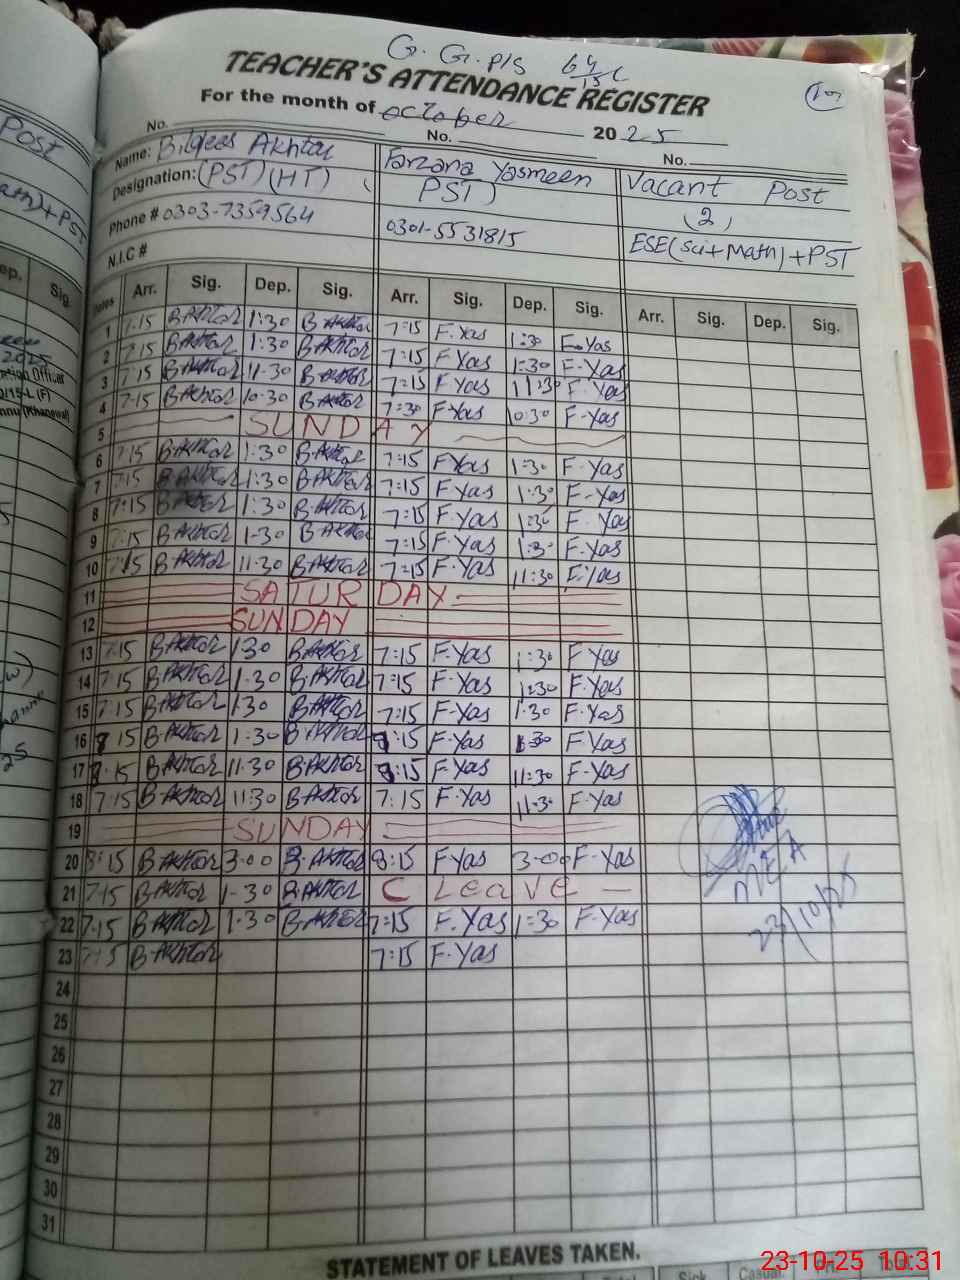 G. G. P/S 64/15-L
TEACHER'S ATTENDANCE REGISTER
For the month of October 2025
No. No. No.
Name: Bilqees Akhtar Farzana Yasmeen Vacant Post
Designation: (PST) (HT) (PST) (2)
Phone # 0303-7359564 0301-5531815 ESE(Sci+Math)+PST
N.I.C #
Dates Arr. Sig. Dep. Sig. Arr. Sig. Dep. Sig. Arr. Sig. Dep. Sig.
1 7:15 B.Akhtar 1:30 B.Akhtar 7:15 F.Yas 1:30 F.Yas
2 7:15 B.Akhtar 1:30 B.Akhtar 7:15 F.Yas 1:30 F.Yas
3 7:15 B.Akhtar 11:30 B.Akhtar 7:15 F.Yas 11:30 F.Yas
4 7:15 B.Akhtar 10:30 B.Akhtar 7:30 F.Yas 10:30 F.Yas
5 SUNDAY
6 7:15 B.Akhtar 1:30 B.Akhtar 7:15 F.Yas 1:30 F.Yas
7 7:15 B.Akhtar 1:30 B.Akhtar 7:15 F.Yas 1:30 F.Yas
8 7:15 B.Akhtar 1:30 B.Akhtar 7:15 F.Yas 1:30 F.Yas
9 7:15 B.Akhtar 1:30 B.Akhtar 7:15 F.Yas 1:30 F.Yas
10 7:15 B.Akhtar 11:30 B.Akhtar 7:15 F.Yas 11:30 F.Yas
11 SATURDAY
12 SUNDAY
13 7:15 B.Akhtar 1:30 B.Akhtar 7:15 F.Yas 1:30 F.Yas
14 7:15 B.Akhtar 1:30 B.Akhtar 7:15 F.Yas 1:30 F.Yas
15 7:15 B.Akhtar 1:30 B.Akhtar 7:15 F.Yas 1:30 F.Yas
16 8:15 B.Akhtar 1:30 B.Akhtar 8:15 F.Yas 1:30 F.Yas
17 8:15 B.Akhtar 11:30 B.Akhtar 8:15 F.Yas 11:30 F.Yas
18 7:15 B.Akhtar 11:30 B.Akhtar 7:15 F.Yas 11:30 F.Yas
19 SUNDAY
20 8:15 B.Akhtar 3:00 B.Akhtar 8:15 F.Yas 3:00 F.Yas
21 7:15 B.Akhtar 1:30 B.Akhtar C Leave
22 7:15 B.Akhtar 1:30 B.Akhtar 7:15 F.Yas 1:30 F.Yas
23 7:15 B.Akhtar 7:15 F.Yas
MEA
23/10/25
24
25
26
27
28
29
30
31
STATEMENT OF LEAVES TAKEN.
23-10-25 10:31